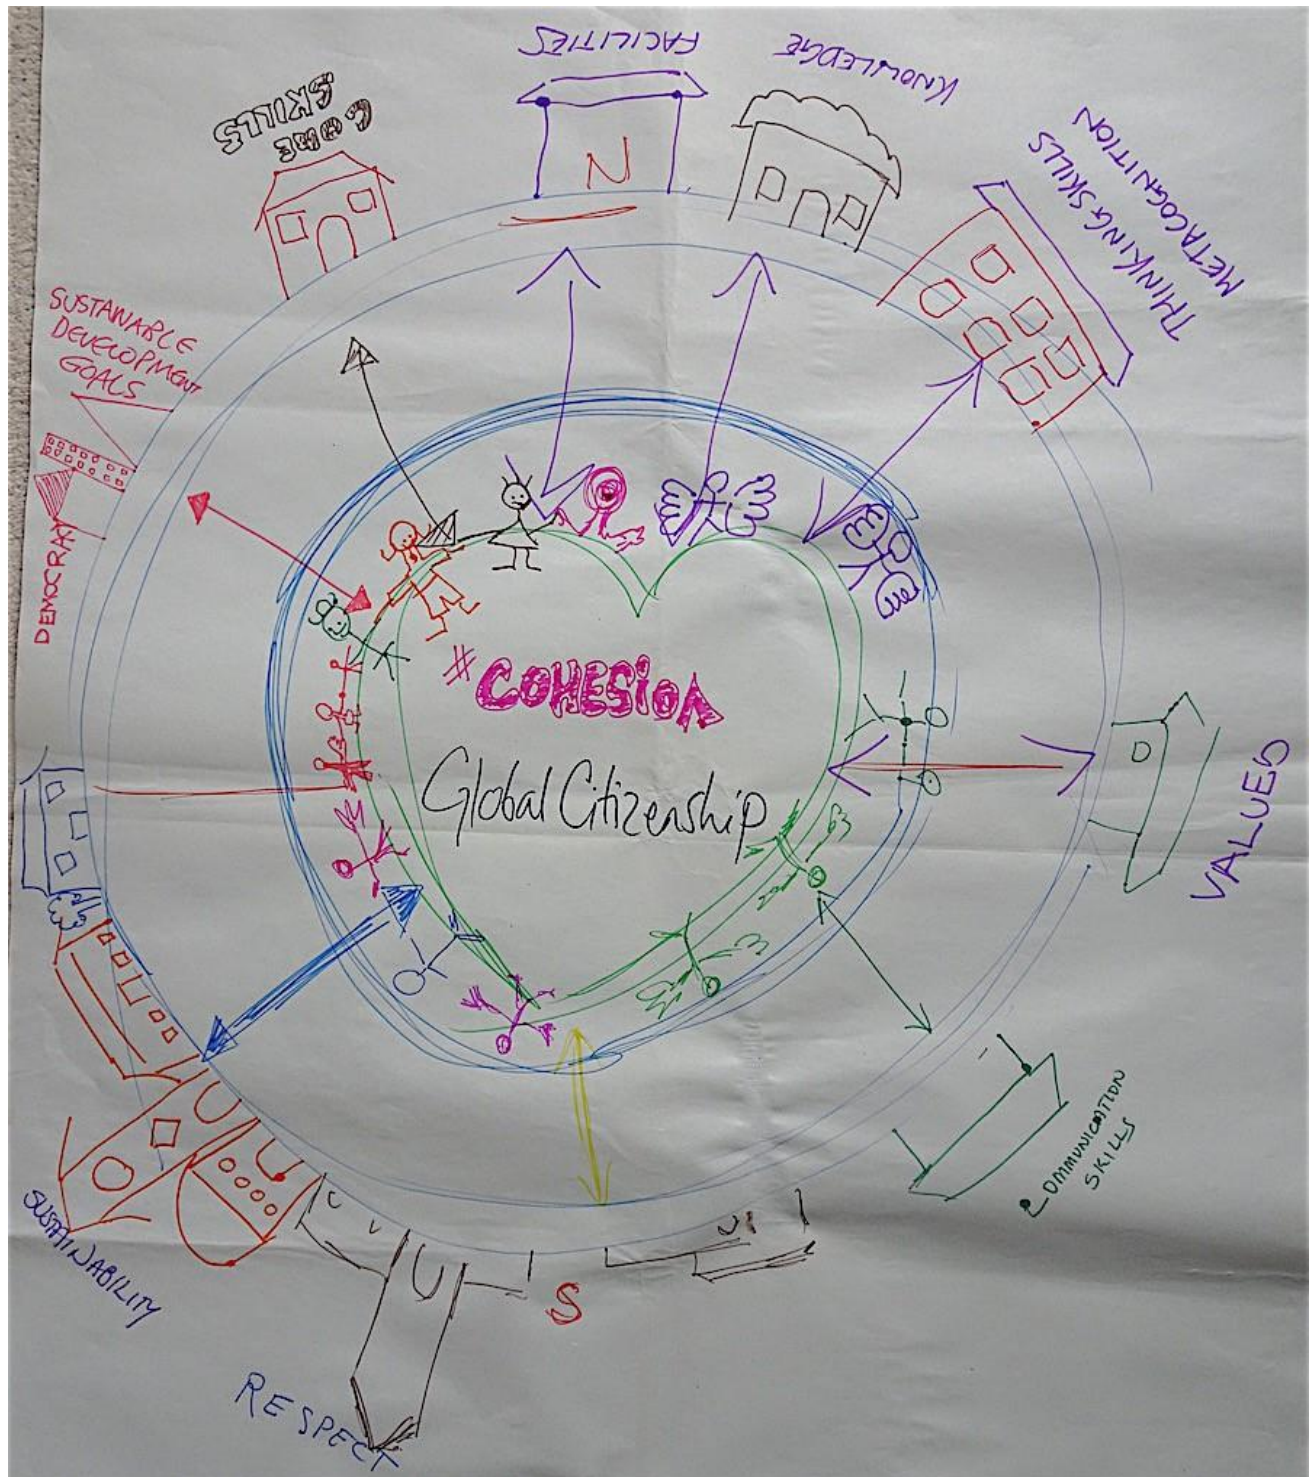 FACILITIES
KNOWLEDGE
CORE
SKILLS
N
THINKING SKILLS
METACOGNITION
SUSTAINABLE
DEVELOPMENT
GOALS
DEMOCRAY
#COHESION
Global Citizenship
VALUED
COMMUNICATION
SKILLS
SUSTAINABILITY
S
RESPECT